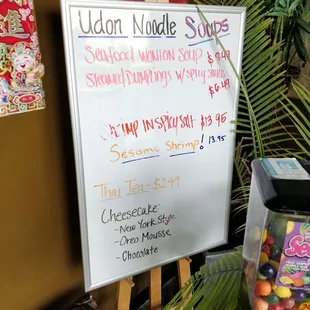 Udon Noodle Soups
Seafood Wonton Soup $9.49
Steamed Dumplings w/spicy sauce
$6.49
in Spicy Salt $13.95
Sesame Shrimp! 13.95
Thai Tea - $2.49
Cheesecake:
- New York Style
- Oreo Mousse
- Chocolate